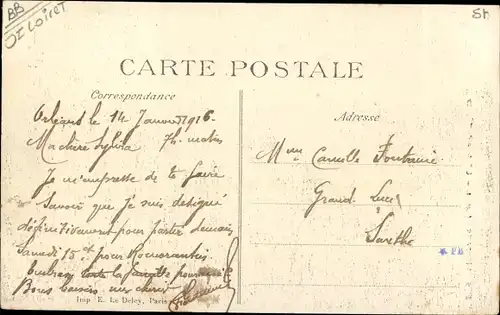 BB
OZ LOIRET
SM
CARTE POSTALE
Correspondance
Adresse
Orléans le 14 Janvier 1916
Ma chère Sylvia 7h. matin
Je m'empresse de te faire
savoir que Je suis désigné
définitivement pour partir demain
Samedi 15 et pour Romorantin
toute la
Bons baisers
Mme Camille
Grand Lucé
Sarthe
Imp E. Le Deley, Paris